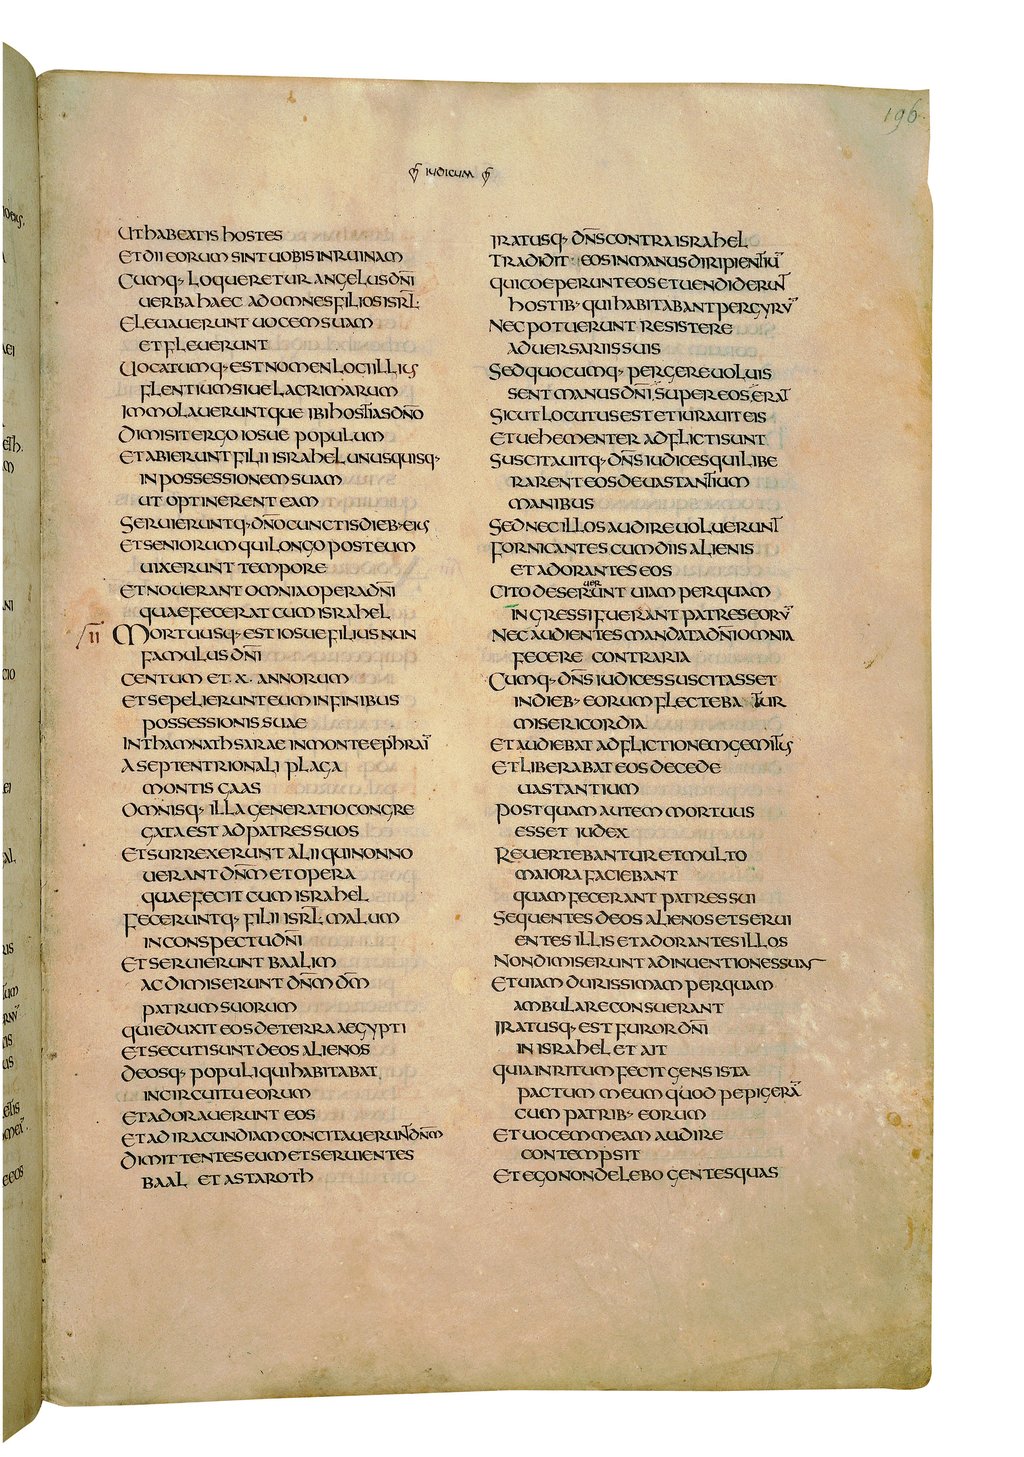 196
IUDICUM
UT HABEATIS HOSTES
ET DII EORUM SINT UOBIS IN RUINAM
CUMQ· LOQUERETUR ANGELUS DN̄I
UERBA HAEC AD OMNES FILIOS ISRL̄
ELEUAUERUNT UOCEM SUAM
ET FLEUERUNT
UOCATUMQ· EST NOMEN LOCI ILLIUS
FLENTIUM SIUE LACRIMARUM
IMMOLAUERUNTQUE IBI HOSTIAS DN̄O
DIMISIT ERGO IOSUE POPULUM
ET ABIERUNT FILII ISRAHEL UNUSQUISQ·
IN POSSESSIONEM SUAM
UT OPTINERENT EAM
SERUIERUNTQ· DN̄O CUNCTIS DIEB· EIUS
ET SENIORUM QUI LONGO POST EUM
UIXERUNT TEMPORE
ET NOUERANT OMNIA OPERA DN̄I
QUAE FECERAT CUM ISRAHEL
II MORTUUSQ· EST IOSUE FILIUS NUN
FAMULUS DN̄I
CENTUM ET ·X· ANNORUM
ET SEPELIERUNT EUM IN FINIBUS
POSSESSIONIS SUAE
IN THAMNATHSARAE IN MONTE EPHRAĪ
A SEPTENTRIONALI PLAGA
MONTIS GAAS
OMNISQ· ILLA GENERATIO CONGRE
GATA EST AD PATRES SUOS
ET SURREXERUNT ALII QUI NON NO
UERANT DN̄M ET OPERA
QUAE FECIT CUM ISRAHEL
FECERUNTQ· FILII ISRL̄ MALUM
IN CONSPECTU DN̄I
ET SERUIERUNT BAALIM
AC DIMISERUNT DN̄M DM̄
PATRUM SUORUM
QUI EDUXIT EOS DE TERRA AEGYPTI
ET SECUTI SUNT DEOS ALIENOS
DEOSQ· POPULI QUI HABITABAT
IN CIRCUITU EORUM
ET ADORAUERUNT EOS
ET AD IRACUNDIAM CONCITAUERUNT DN̄M
DIMITTENTES EUM ET SERUIENTES
BAAL ET ASTAROTH
IRATUSQ· DN̄S CONTRA ISRAHEL
TRADIDIT EOS IN MANUS DIRIPIENTIŪ
QUI COEPERUNT EOS ET UENDIDERUNT
HOSTIB· QUI HABITABANT PER GYRŪ
NEC POTUERUNT RESISTERE
ADUERSARIIS SUIS
SED QUOCUMQ· PERGERE UOLUIS
SENT MANUS DN̄I SUPER EOS ERAT
SICUT LOCUTUS EST ET IURAUIT EIS
ET UEHEMENTER ADFLICTI SUNT
SUSCITAUITQ· DN̄S IUDICES QUI LIBE
RARENT EOS DE UASTANTIUM
MANIBUS
SED NEC ILLOS AUDIRE UOLUERUNT
FORNICANTES CUM DIIS ALIENIS
ET ADORANTES EOS
CITO DESERUERUNT UIAM PER QUAM
INGRESSI FUERANT PATRES EORŪ
NEC AUDIENTES MANDATA DN̄I OMNIA
FECERE CONTRARIA
CUMQ· DN̄S IUDICES SUSCITASSET
IN DIEB· EORUM FLECTEBATUR
MISERICORDIA
ET AUDIEBAT ADFLICTIONEM GEMITUS
ET LIBERABAT EOS DE CEDE
UASTANTIUM
POSTQUAM AUTEM MORTUUS
ESSET IUDEX
REUERTEBANTUR ET MULTO
MAIORA FACIEBANT
QUAM FECERANT PATRES SUI
SEQUENTES DEOS ALIENOS ET SERUI
ENTES ILLIS ET ADORANTES ILLOS
NON DIMISERUNT ADINUENTIONES SUAS
ET UIAM DURISSIMAM PER QUAM
AMBULARE CONSUERANT
IRATUSQ· EST FUROR DN̄I
IN ISRAHEL ET AIT
QUIA INRITUM FECIT GENS ISTA
PACTUM MEUM QUOD PEPIGERĀ
CUM PATRIB· EORUM
ET UOCEM MEAM AUDIRE
CONTEMPSIT
ET EGO NON DELEBO GENTES QUAS